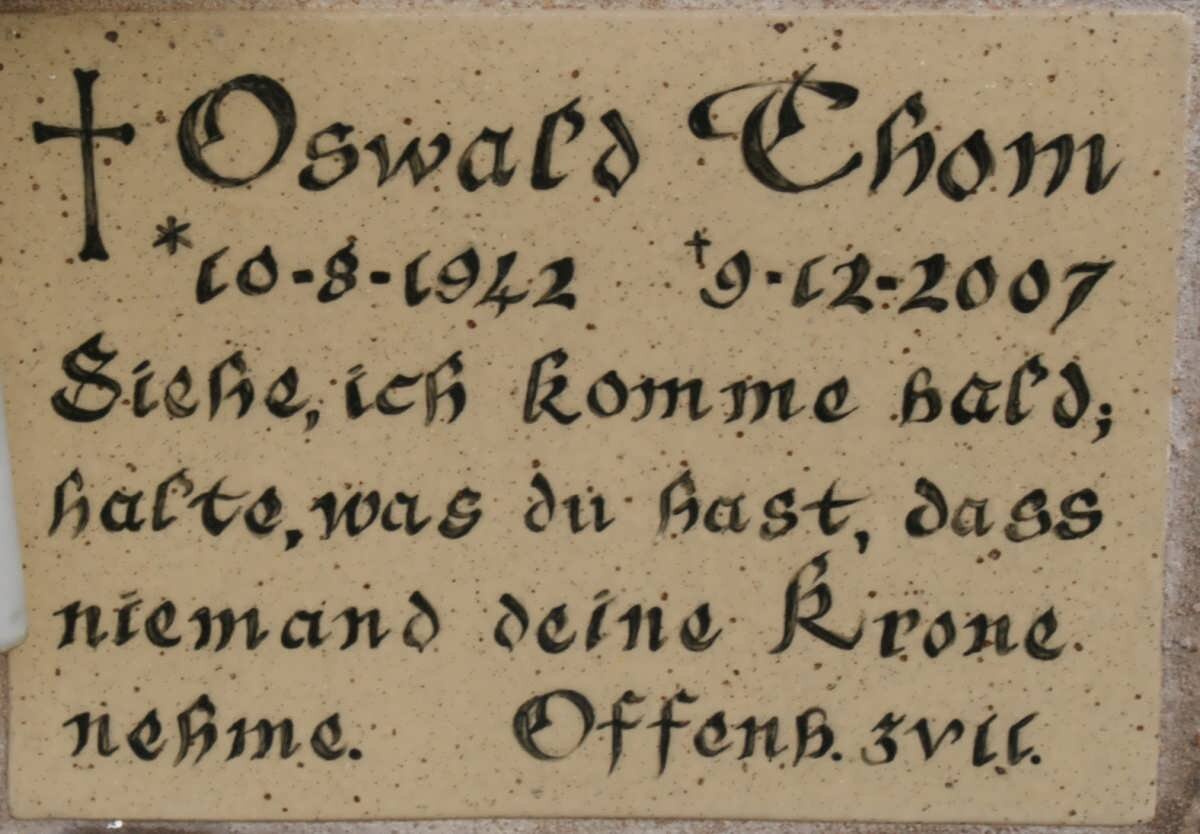 † Oswald Thom
* 10-8-1942 † 9-12-2007
Siehe, ich komme bald;
halte, was du hast, dass
niemand deine Krone
nehme. Offenb. 3v11.